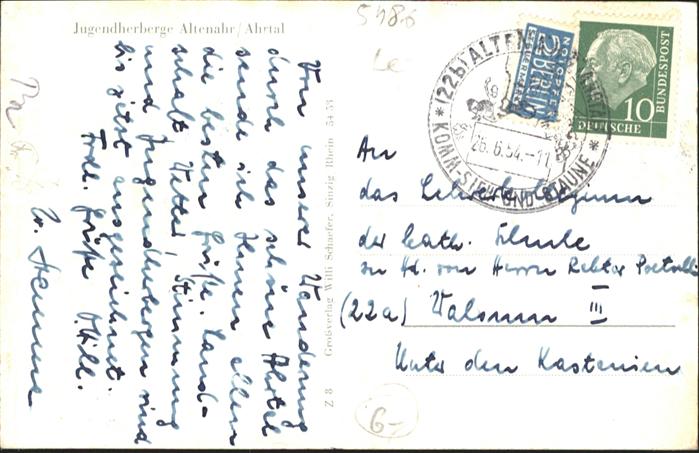 Jugendherberge Altenahr/Ahrtal
Von unserer Wanderung
durch das schöne Ahrtal
sende ich Ihnen allen
die besten Grüße. Land-
schaft, Wetter, Stimmung
und Jugendherbergen sind
bis jetzt ausgezeichnet.
Frdl. Grüße Ihr Will.
Z 8 Großverlag Willi Schaefer, Sinzig Rhein 54 53
5486
NOTOPFER
2 BERLIN
STEUERMARKE
10
DEUTSCHE
BUNDESPOST
*(22b) ALTENAHR (AHR)*
26.6.54.-11
KOMM-SIEH UND STAUNE
An
das Lehrerkollegium
der kath. Schule
zu Hd. von Herrn Rektor
(22a) Walsum III
Unter den Kastanien
6-